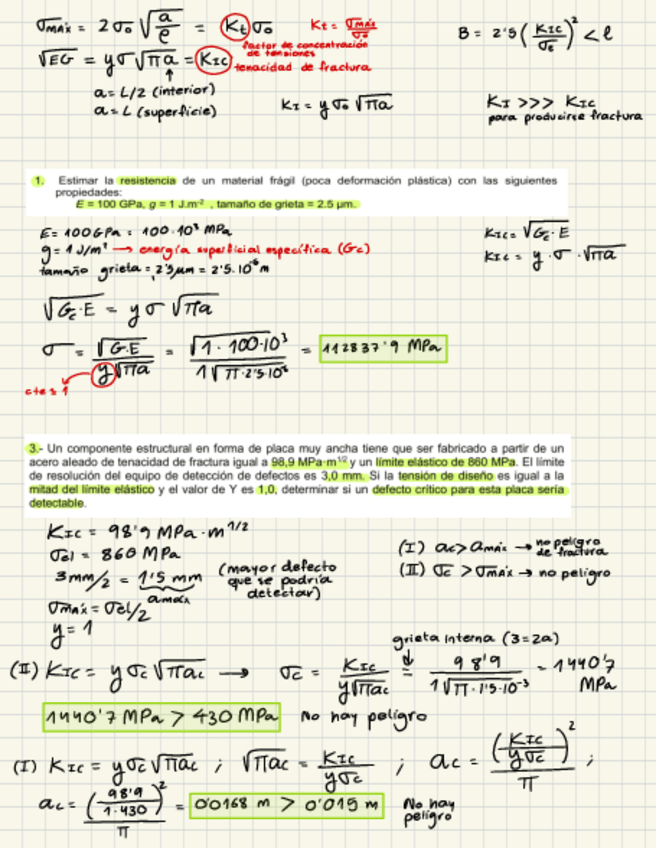 σmáx = 2σ₀ √(a/e) = Kt σ₀   Kt = σmáx/σ₀   B = 2'5 (KIC/σe)² < l
factor de concentración de tensiones
√EG = yσ√πa = KIC   tenacidad de fractura
a = L/2 (interior)
a = L (superficie)   KI = yσ₀√πa   KI >>> KIC
para producirse fractura
1. Estimar la resistencia de un material frágil (poca deformación plástica) con las siguientes
propiedades:
E = 100 GPa, g = 1 J.m⁻², tamaño de grieta = 2.5 µm.
E = 100 GPa = 100·10³ MPa   KIC = √Gc·E
g = 1 J/m² → energía superficial específica (Gc)   KIC = y·σ·√πa
tamaño grieta = 2'5 µm = 2'5·10⁻⁶ m
√Gc·E = yσ√πa
σ = √G·E / y√πa = √1·100·10³ / 1√π·2'5·10⁻⁶ = 112837'9 MPa
cte ≈ 1
3.- Un componente estructural en forma de placa muy ancha tiene que ser fabricado a partir de un
acero aleado de tenacidad de fractura igual a 98,9 MPa·m¹/² y un límite elástico de 860 MPa. El límite
de resolución del equipo de detección de defectos es 3,0 mm. Si la tensión de diseño es igual a la
mitad del límite elástico y el valor de Y es 1,0, determinar si un defecto crítico para esta placa sería
detectable.
KIC = 98'9 MPa·m¹/²
σel = 860 MPa   (I) ac > amáx → no peligro de fractura
3mm/2 = 1'5 mm (mayor defecto que se podría detectar)   (II) σc > σmáx → no peligro
amáx
σmáx = σel/2
y = 1
grieta interna (3=2a)
(II) KIC = yσc√πac → σc = KIC / y√πac = 98'9 / 1√π·1'5·10⁻³ = 1440'7 MPa
1440'7 MPa > 430 MPa   No hay peligro
(I) KIC = yσc√πac ; √πac = KIC/yσc ; ac = (KIC/yσc)² / π ;
ac = (98'9/1·430)² / π = 0'0168 m > 0'015 m   No hay peligro